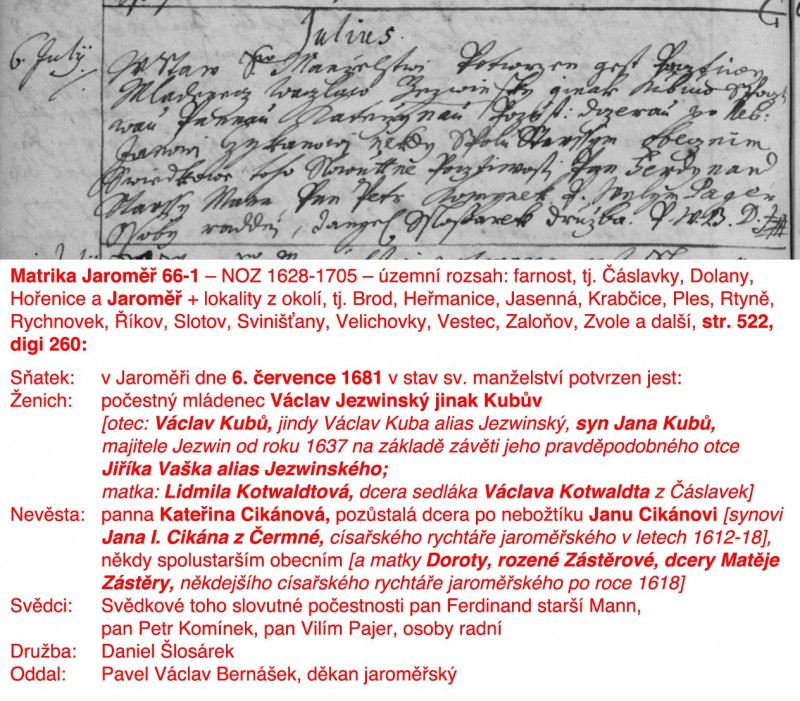 Julius.
6. July
W Staw Swa Manželstwi Potwrzen gest Pocztiwy
Mladenecz Waczlaw Jezwinsky ginak Kubuw
Pannau Katerzinau Pozust: dczerau po Neb:
Janowi Czykanowi někdy Spolu Starssym obecznim
Swiedkowe toho Slowutne Pocztiwosti Pan Ferdynand
Starssy Mann Pan Petr Komynek P. Wylym Pager
Osoby raddni, Danyel Sslosarek družba. P. W. B. D. J.
Matrika Jaroměř 66-1 – NOZ 1628-1705 – územní rozsah: farnost, tj. Čáslavky, Dolany,
Hořenice a Jaroměř + lokality z okolí, tj. Brod, Heřmanice, Jasenná, Krabčice, Ples, Rtyně,
Rychnovek, Říkov, Slotov, Svinišťany, Velichovky, Vestec, Zaloňov, Zvole a další, str. 522,
digi 260:
Sňatek: v Jaroměři dne 6. července 1681 v stav sv. manželství potvrzen jest:
Ženich: počestný mládenec Václav Jezwinský jinak Kubův
[otec: Václav Kubů, jindy Václav Kuba alias Jezwinský, syn Jana Kubů,
majitele Jezwin od roku 1637 na základě závěti jeho pravděpodobného otce
Jiříka Vaška alias Jezwinského;
matka: Lidmila Kotwaldtová, dcera sedláka Václava Kotwaldta z Čáslavek]
Nevěsta: panna Kateřina Cikánová, pozůstalá dcera po nebožtíku Janu Cikánovi [synovi
Jana I. Cikána z Čermné, císařského rychtáře jaroměřského v letech 1612-18],
někdy spolustarším obecním [a matky Doroty, rozené Zástěrové, dcery Matěje
Zástěry, někdejšího císařského rychtáře jaroměřského po roce 1618]
Svědci: Svědkové toho slovutné počestnosti pan Ferdinand starší Mann,
pan Petr Komínek, pan Vilím Pajer, osoby radní
Družba: Daniel Šlosárek
Oddal: Pavel Václav Bernášek, děkan jaroměřský